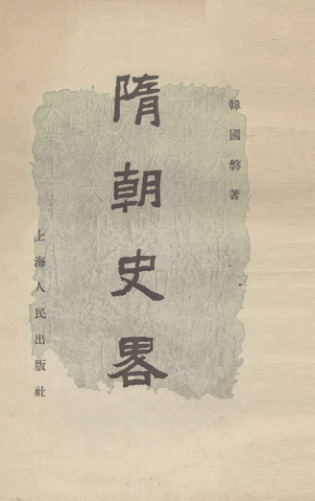 韓國磐著
隋朝史畧
上海人民出版社